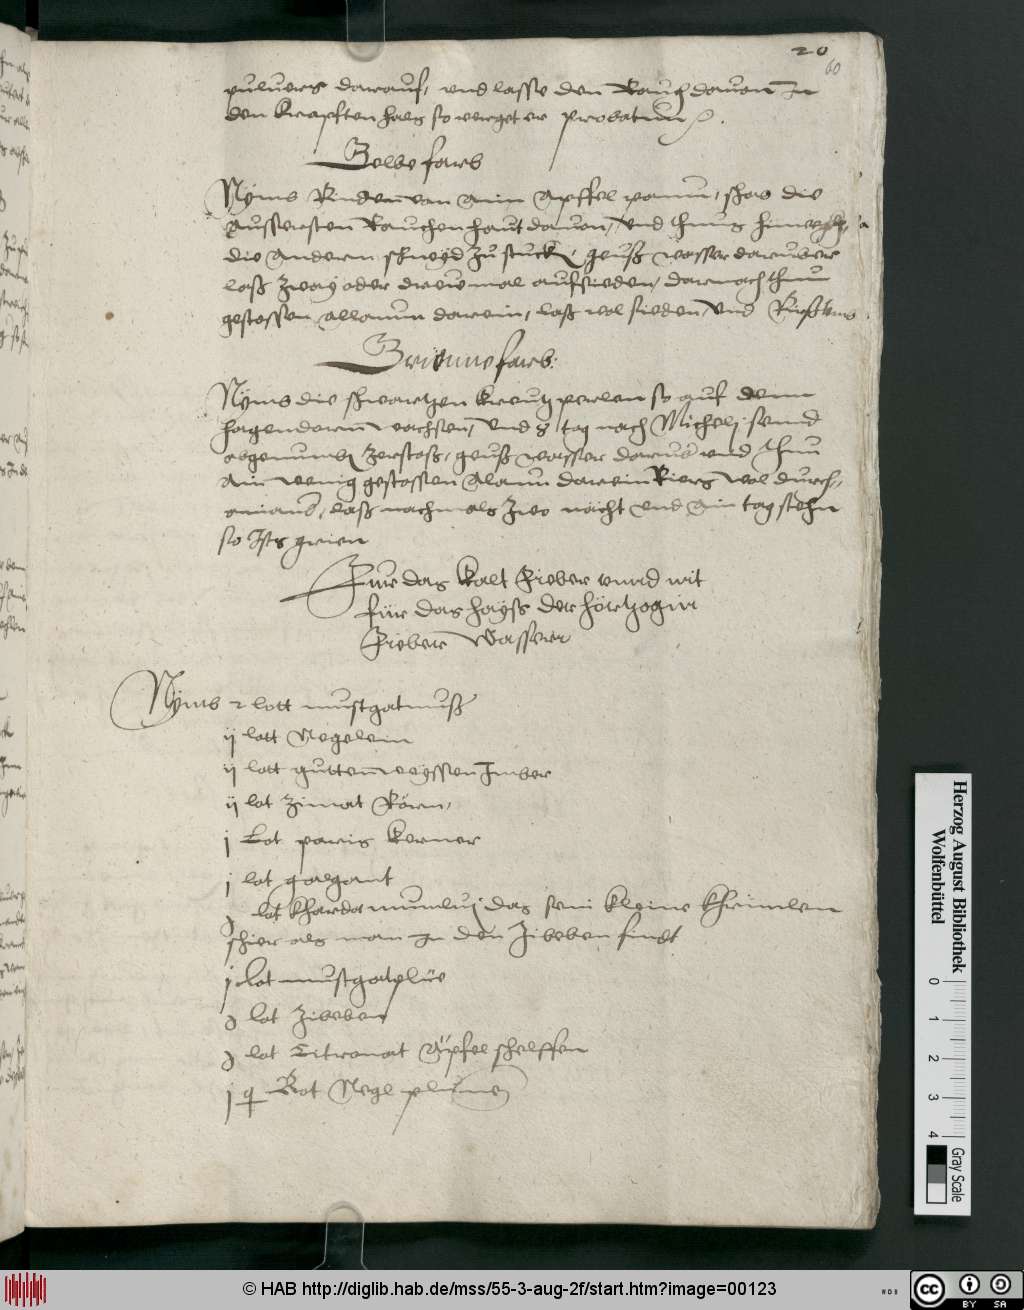 20
60
puluers darauf, und lasse den Rauch dauon In
den kropften hals so verget er probatum
Gelbe farb
Nÿms Rinden von ain Apffel paum, schab die
eussersten Rauchen haut dauon, und thuns hinwegkh,
die andern schneÿd zu stuckh, geuß wasser daruber
laß zway oder drew mal aufsieden, darnach thuu
gestossen allaun darein, laß wol sieden, und
Grienne farb:
Nÿms die schwartzen kreutz perlen so auf dem
hagendorn wachsen, und 8 tag nach Michelj seind
abgenumen zerstoß, geuß wasser daruber und thuu
ain wenig gestossen Alaun darein Riers wol durch
ainand, laß nachmals zwo nächt und ain tag stehn
so Ists grien
Für das kalt Fieber unnd nit
für das hayß der hörtzogin
Fieber wasser
Nÿms 2 lott mustgatnuß
ij lott Negelein
ij lott gutten weyssen Imber
ij lot Zimat Rörn,
j Lot paris kerner
j lot galgant
lot khardamumluj das sein kleine khernlen
schier als man In den Zibeben findt
j lot mustgatplüe
lot Zibeben
lot Citronat Öpfel schelffen
j q Rot Negl plumen
Herzog August Bibliothek
Wolfenbüttel
0
1
2
3
4
Gray Scale
© HAB http://diglib.hab.de/mss/55-3-aug-2f/start.htm?image=00123
cc BY SA